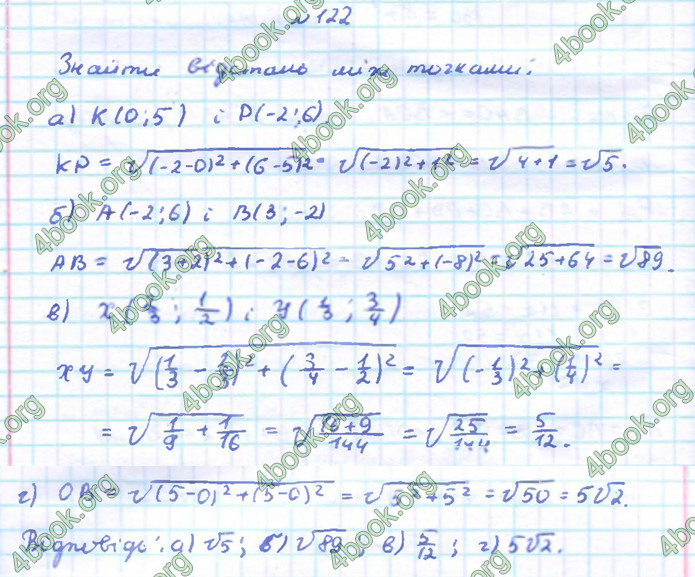 № 122
Знайти відстань між точками:
а) K(0;5) і P(-2;6)
KP = √((-2-0)²+(6-5)²) = √((-2)²+1²) = √(4+1) = √5.
б) A(-2;6) і B(3;-2)
AB = √((3+2)²+(-2-6)²) = √(5²+(-8)²) = √(25+64) = √89.
в) X(2/3; 1/2) і Y(1/3; 3/4)
XY = √((1/3 - 2/3)² + (3/4 - 1/2)²) = √((-1/3)² + (1/4)²) =
= √(1/9 + 1/16) = √((16+9)/144) = √(25/144) = 5/12.
г) OB = √((5-0)²+(5-0)²) = √(5²+5²) = √50 = 5√2.
Відповідь: а) √5; б) √89; в) 5/12; г) 5√2.
4book.org